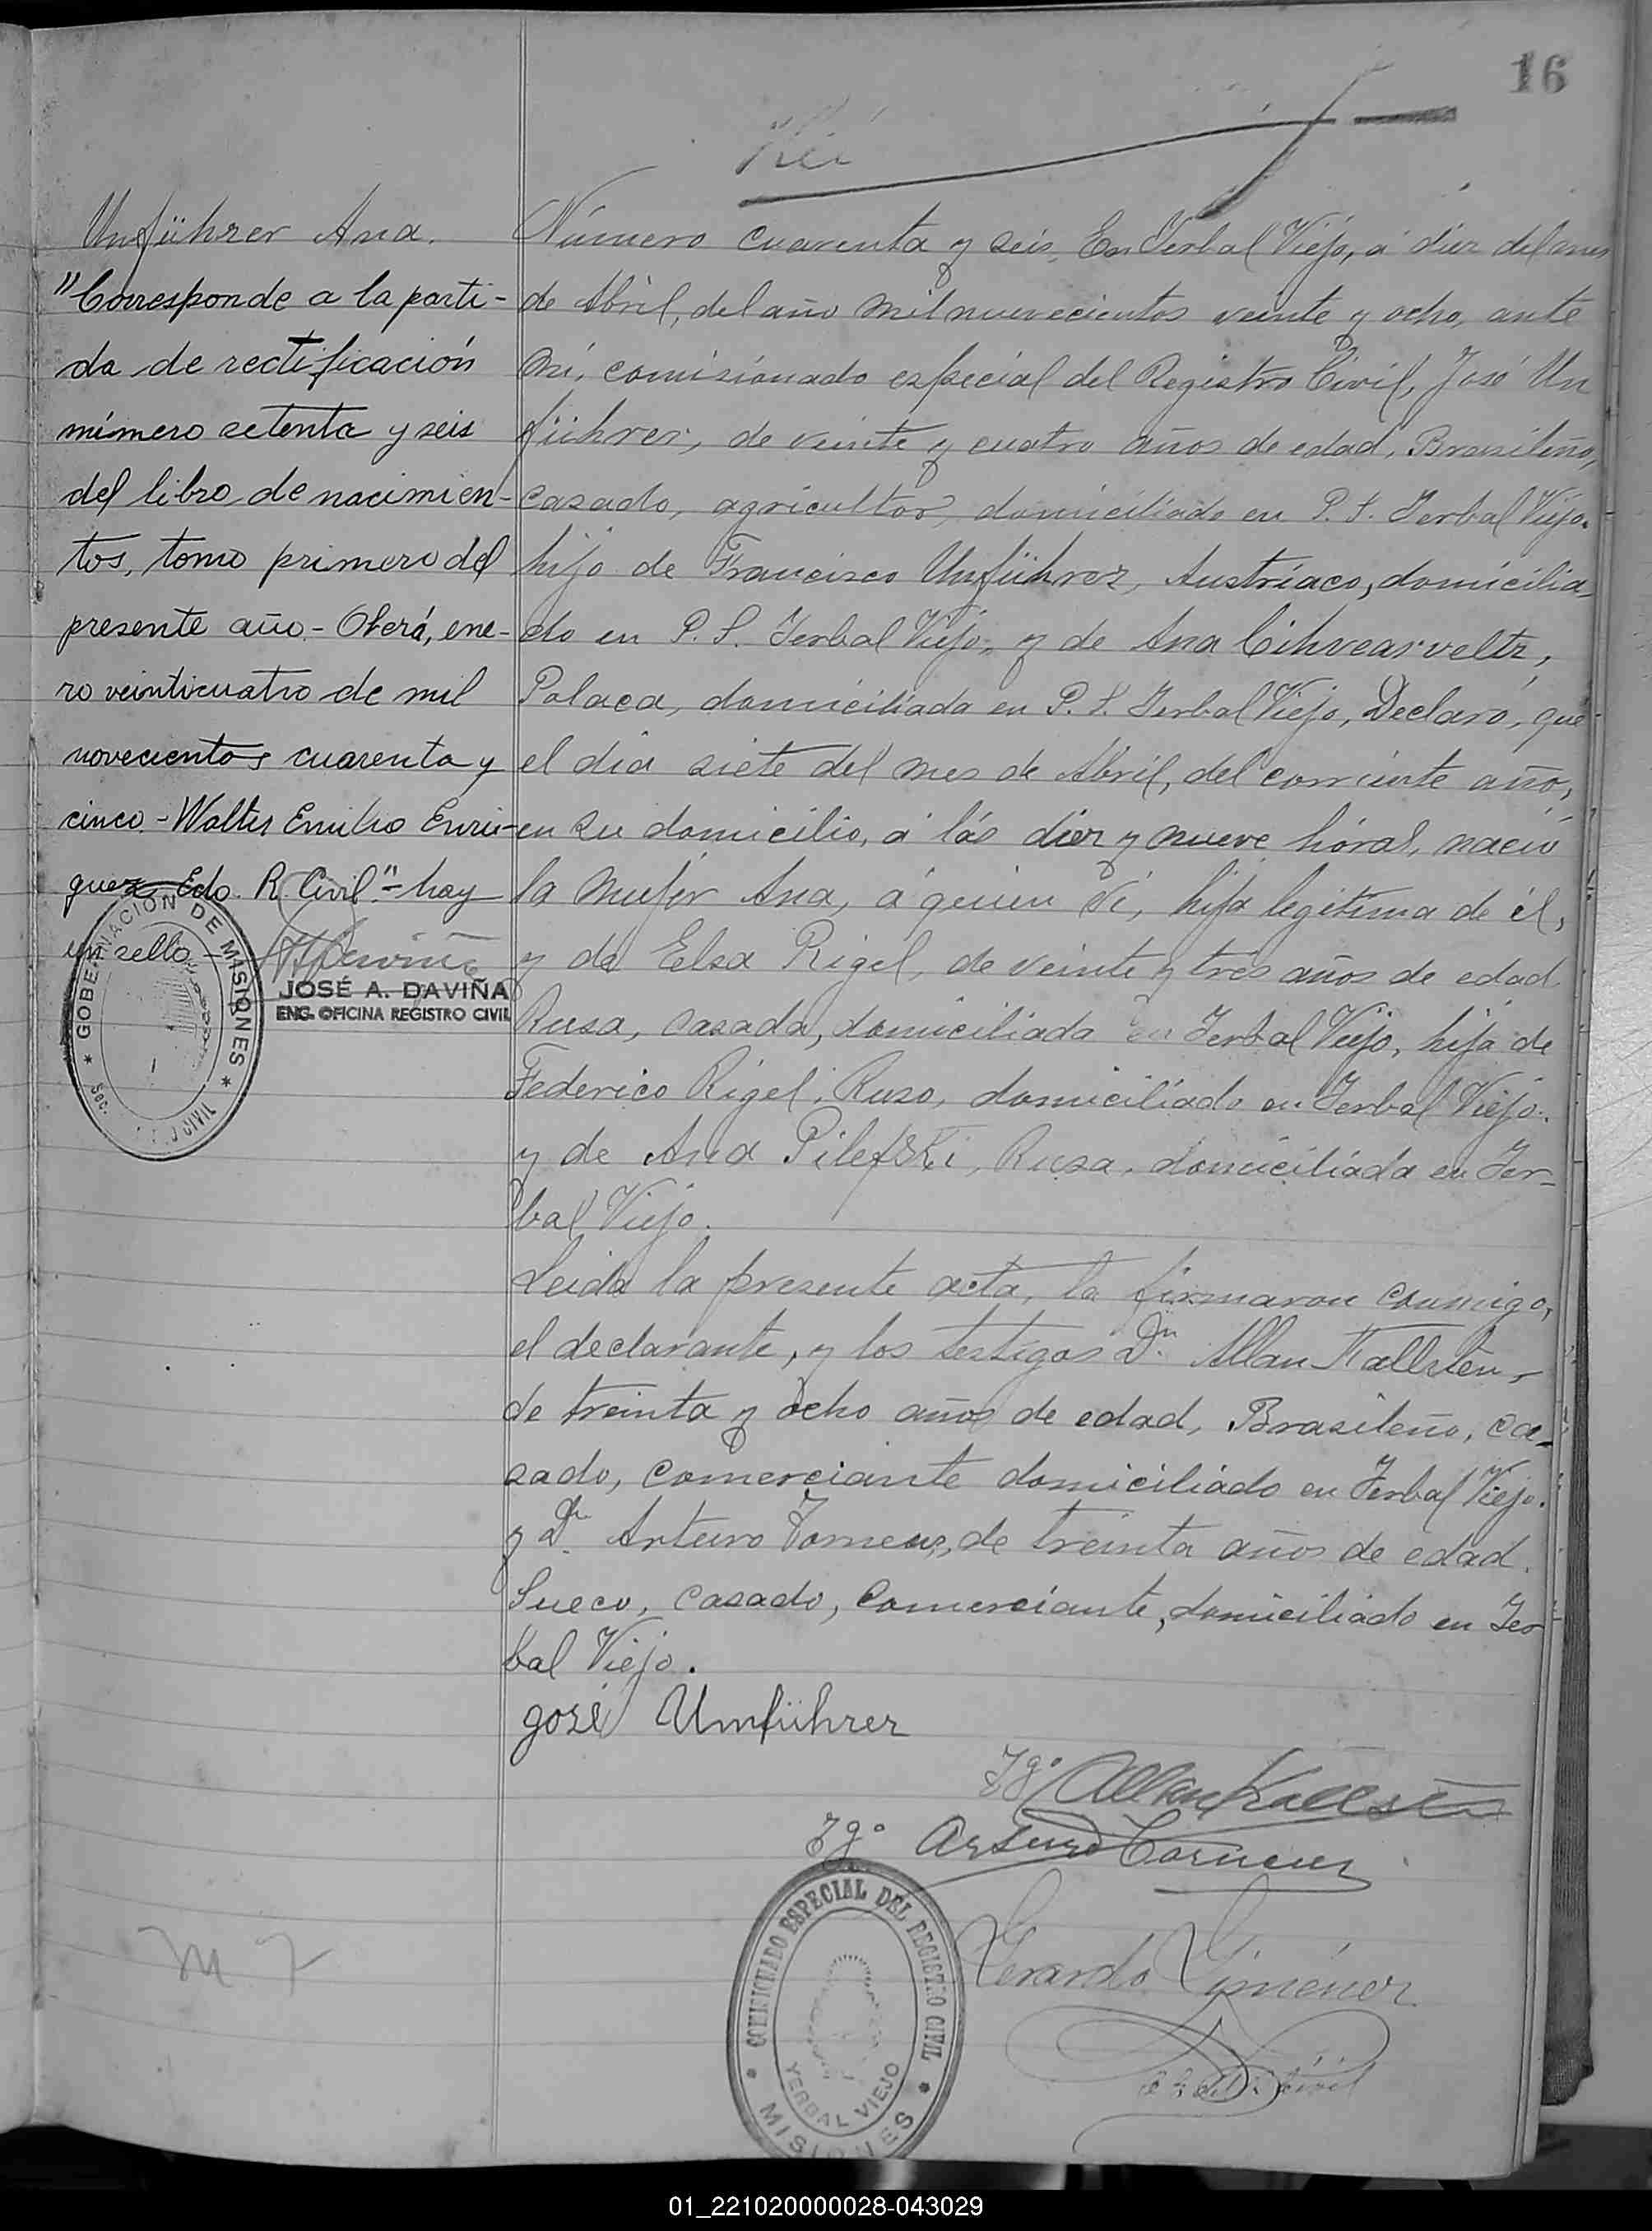 16
Unführer Ana.
"Corresponde a la parti-
da de rectificación
número setenta y seis
del libro de nacimien-
tos, tomo primero del
presente año.- Oberá, ene-
ro veinticuatro de mil
novecientos cuarenta y
cinco.- Walter Emilio Enri-
quez, Edo. R. Civil"- hay
un sello -
JOSÉ A. DAVIÑA
ENC. OFICINA REGISTRO CIVIL
GOBERNACIÓN DE MISIONES
Número cuarenta y seis, En Yerbal Viejo, á diez del mes
de Abril, del año mil nuevecientos veinte y ocho, ante
mi, comisionado especial del Registro Civil, José Un
führer, de veinte y cuatro años de edad, Brasileño,
casado, agricultor, domiciliado en P. S. Yerbal Viejo.
hijo de Francisco Unführer, Austríaco, domicilia-
do en P. S. Yerbal Viejo, y de Ana
Polaca, domiciliada en P. S. Yerbal Viejo, Declaró, que
el día siete del mes de Abril, del corriente año,
en su domicilio, á lás diez y nueve hóras, nació
la mujer Ana, á quien ví, hija legítima de él,
y de Elsa Rigel, de veinte y tres años de edad
Rusa, casada, domiciliada en Yerbal Viejo, hija de
Federico Rigel, Ruso, domiciliado en Yerbal Viejo.
y de Ana Pilefski, Rusa, domiciliada en Yer-
bal Viejo.
Leida la presente acta, la firmaron conmigo,
el declarante, y los testigos Dn. Allan Kallsten,
de treinta y ocho años de edad, Brasileño, ca-
sado, comerciante domiciliado en Yerbal Viejo.
y Dn. Arturo de treinta años de edad.
Sueco, casado, comerciante, domiciliado en Yer
bal Viejo.
José Umführer
Tgo Allan Kallsten
Tgo Arturo
Gerardo Giménez
COMISIONADO ESPECIAL DEL REGISTRO CIVIL
YERBAL VIEJO
MISIONES
01_221020000028-043029